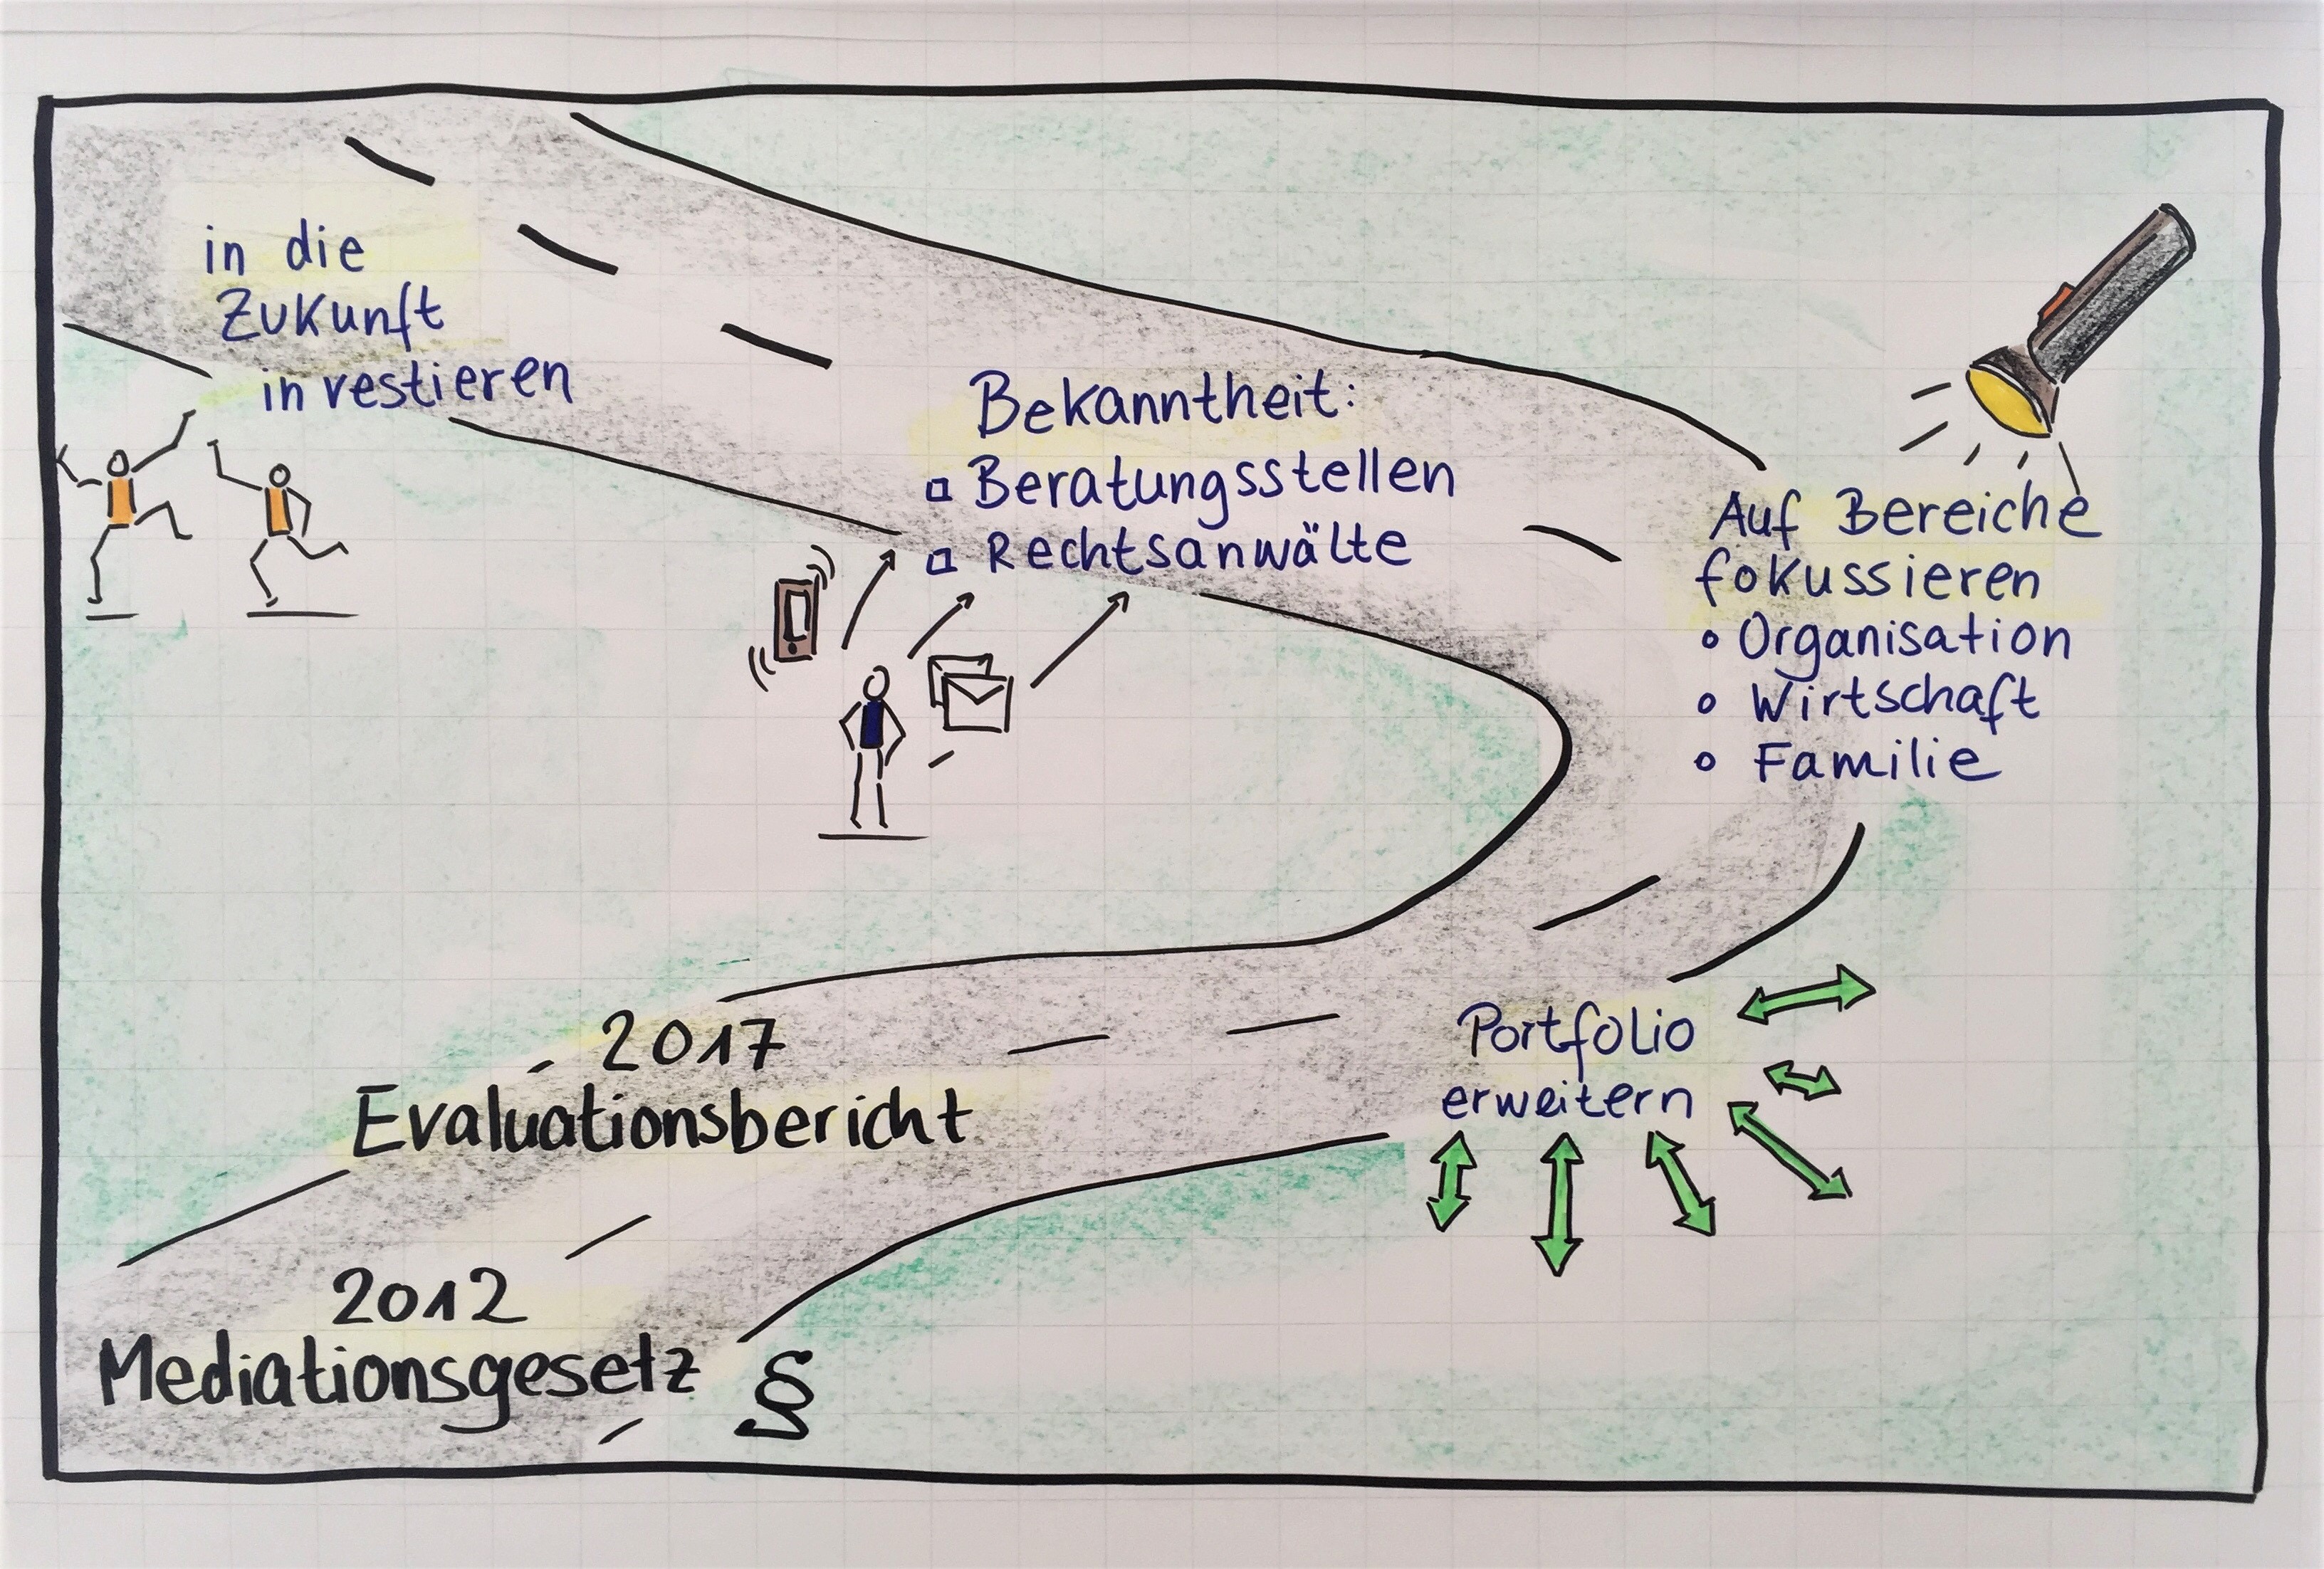 in die
Zukunft
investieren
Bekanntheit:
Beratungsstellen
Rechtsanwälte
Auf Bereiche
fokussieren
Organisation
Wirtschaft
Familie
2017
Evaluationsbericht
Portfolio
erweitern
2012
Mediationsgesetz §